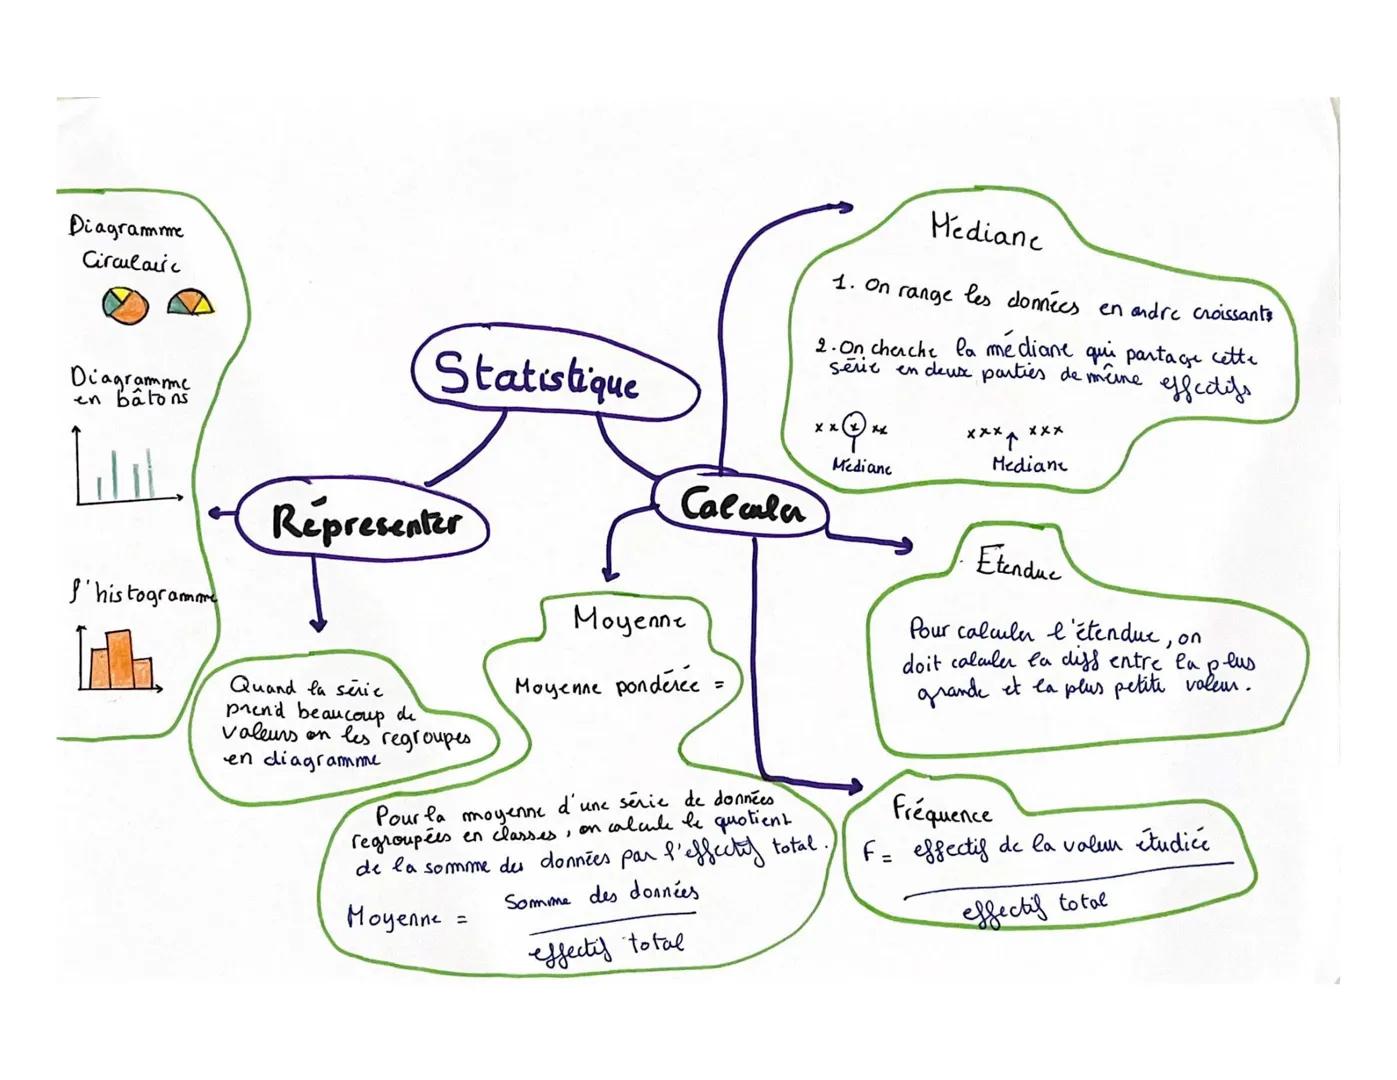 Statistique
Répresenter
Calculer
Diagramme
Circulaire
Diagramme
en bâtons
l'histogramme
Quand la série
prend beaucoup de
valeurs on les regroupes
en diagramme
Moyenne
Moyenne pondérée =
Pour la moyenne d'une série de données
regroupées en classes, on calcule le quotient
de la somme des données par l'effectif total.
Moyenne = Somme des données
effectif total
Médiane
1. On range les données en ordre croissants
2. On cherche la médiane qui partage cette
série en deux parties de même effectifs
x x x x x
x x x x x x
Médiane
Médiane
Etendue
Pour calculer l'étendue, on
doit calculer la diff entre la plus
grande et la plus petite valeur.
Fréquence
F = effectif de la valeur étudiée
effectif total